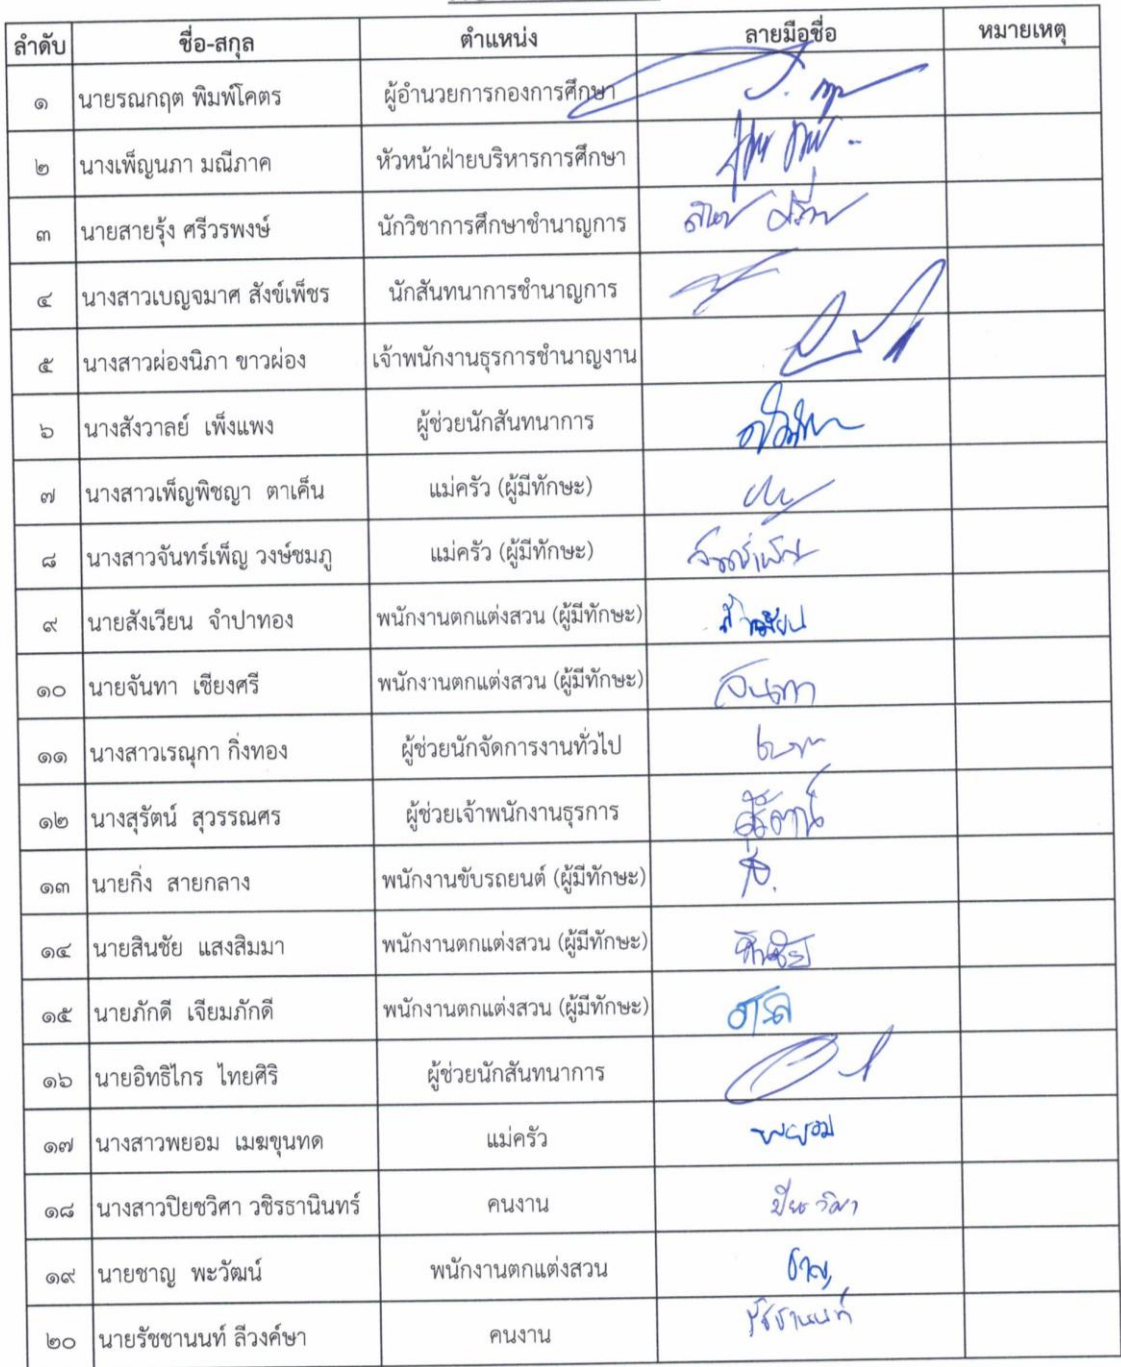 ลำดับ ชื่อ-สกุล ตำแหน่ง ลายมือชื่อ หมายเหตุ
๑ นายรณกฤต พิมพ์โคตร ผู้อำนวยการกองการศึกษา
๒ นางเพ็ญนภา มณีภาค หัวหน้าฝ่ายบริหารการศึกษา
๓ นายสายรุ้ง ศรีวรพงษ์ นักวิชาการศึกษาชำนาญการ
๔ นางสาวเบญจมาศ สังข์เพ็ชร นักสันทนาการชำนาญการ
๕ นางสาวผ่องนิภา ขาวผ่อง เจ้าพนักงานธุรการชำนาญงาน
๖ นางสังวาลย์ เพ็งแพง ผู้ช่วยนักสันทนาการ
๗ นางสาวเพ็ญพิชญา ตาเค็น แม่ครัว (ผู้มีทักษะ)
๘ นางสาวจันทร์เพ็ญ วงษ์ชมภู แม่ครัว (ผู้มีทักษะ) จันทร์เพ็ญ
๙ นายสังเวียน จำปาทอง พนักงานตกแต่งสวน (ผู้มีทักษะ) สังเวียน
๑๐ นายจันทา เชียงศรี พนักงานตกแต่งสวน (ผู้มีทักษะ) จันทา
๑๑ นางสาวเรณุกา กิ่งทอง ผู้ช่วยนักจัดการงานทั่วไป
๑๒ นางสุรัตน์ สุวรรณศร ผู้ช่วยเจ้าพนักงานธุรการ สุรัตน์
๑๓ นายกิ่ง สายกลาง พนักงานขับรถยนต์ (ผู้มีทักษะ)
๑๔ นายสินชัย แสงสิมมา พนักงานตกแต่งสวน (ผู้มีทักษะ) สินชัย
๑๕ นายภักดี เจียมภักดี พนักงานตกแต่งสวน (ผู้มีทักษะ)
๑๖ นายอิทธิไกร ไทยศิริ ผู้ช่วยนักสันทนาการ
๑๗ นางสาวพยอม เมฆขุนทด แม่ครัว พยอม
๑๘ นางสาวปิยชวิศา วชิรธานินทร์ คนงาน ปิยชวิศา
๑๙ นายชาญ พะวัฒน์ พนักงานตกแต่งสวน ชาญ
๒๐ นายรัชชานนท์ ลีวงค์ษา คนงาน รัชชานนท์